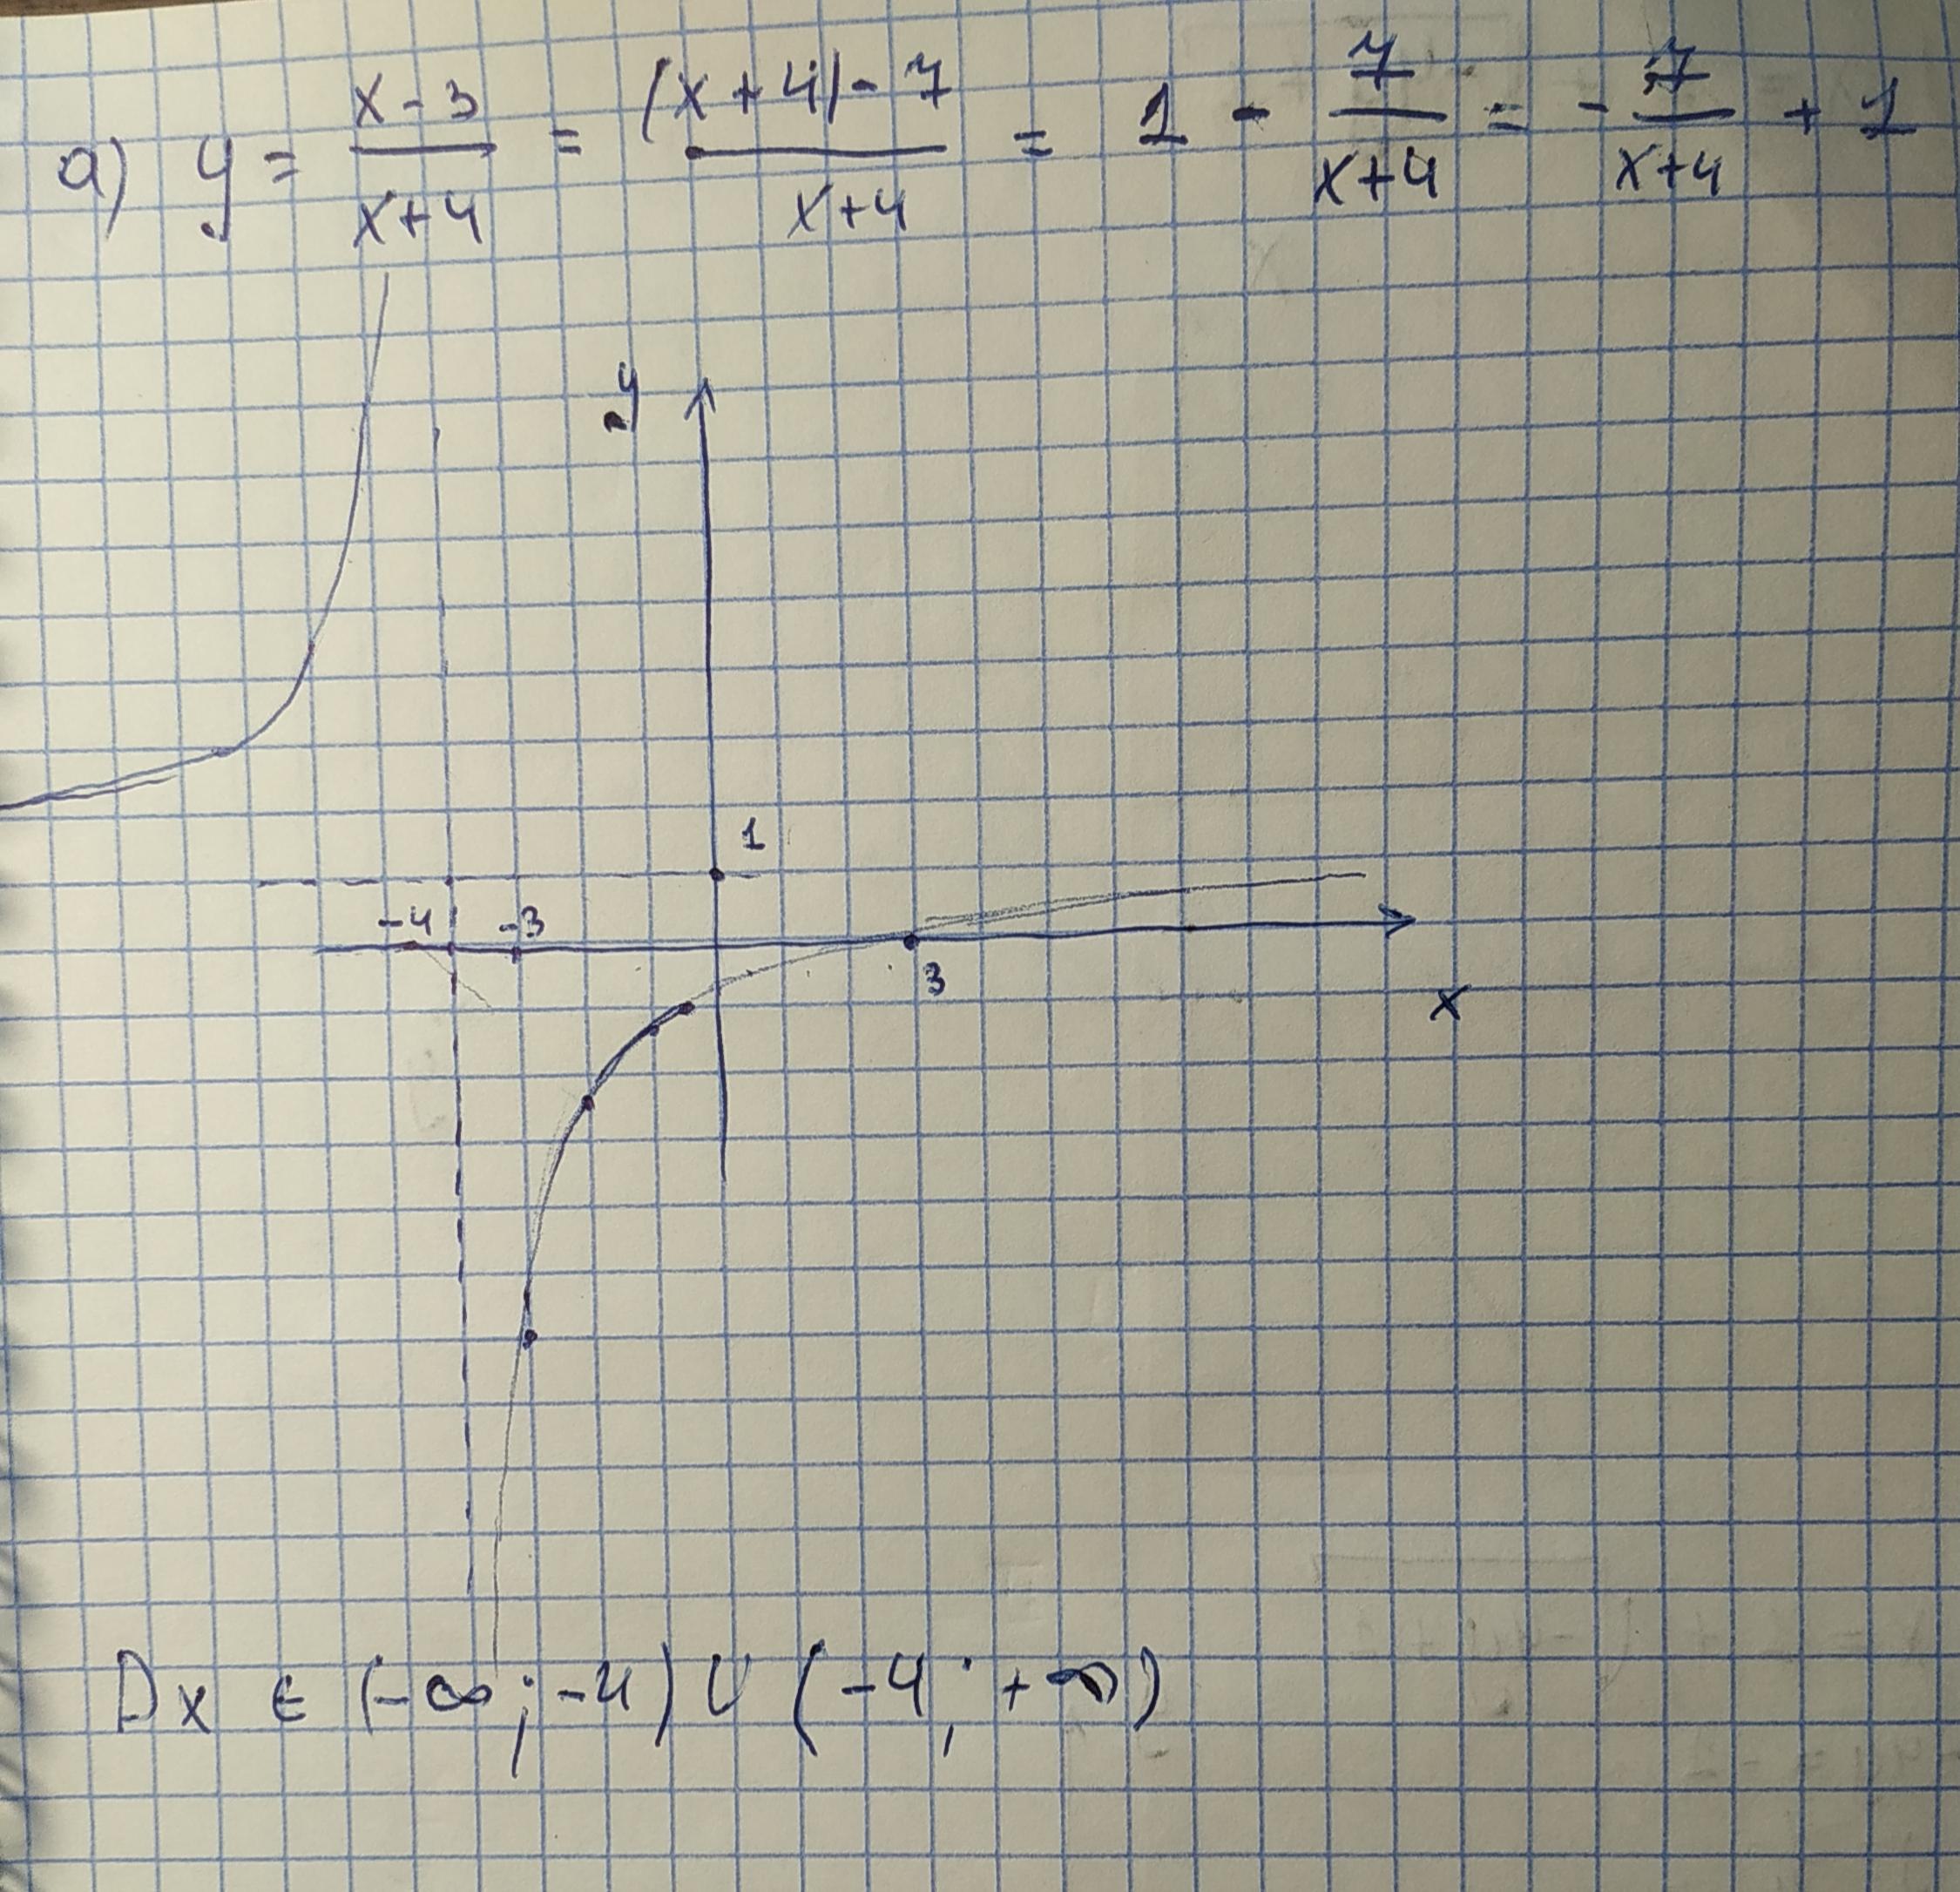 а) y = x-3/x+4 = (x+4)-7/x+4 = 1 - 7/x+4 = - 7/x+4 + 1
y
1
-4 -3
3
x
Dx ∈ (-∞; -4) ∪ (-4; +∞)